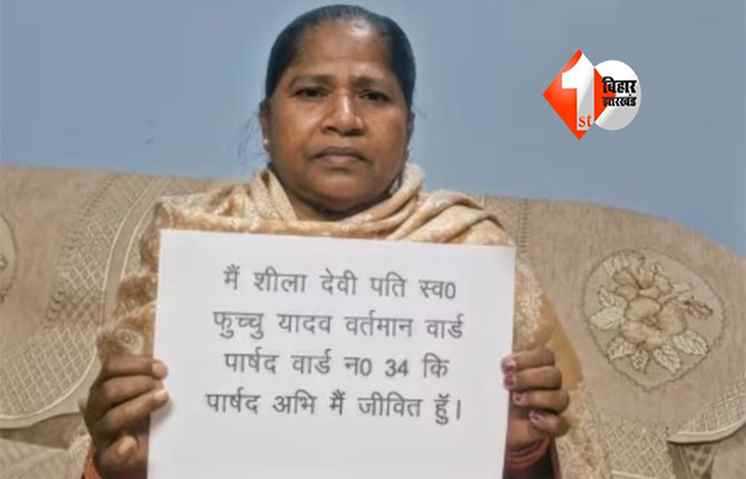 1st
बिहार
झारखंड
मैं शीला देवी पति स्व0
फुच्चु यादव वर्तमान वार्ड
पार्षद वार्ड न0 34 कि
पार्षद अभि मैं जीवित हुॅ।